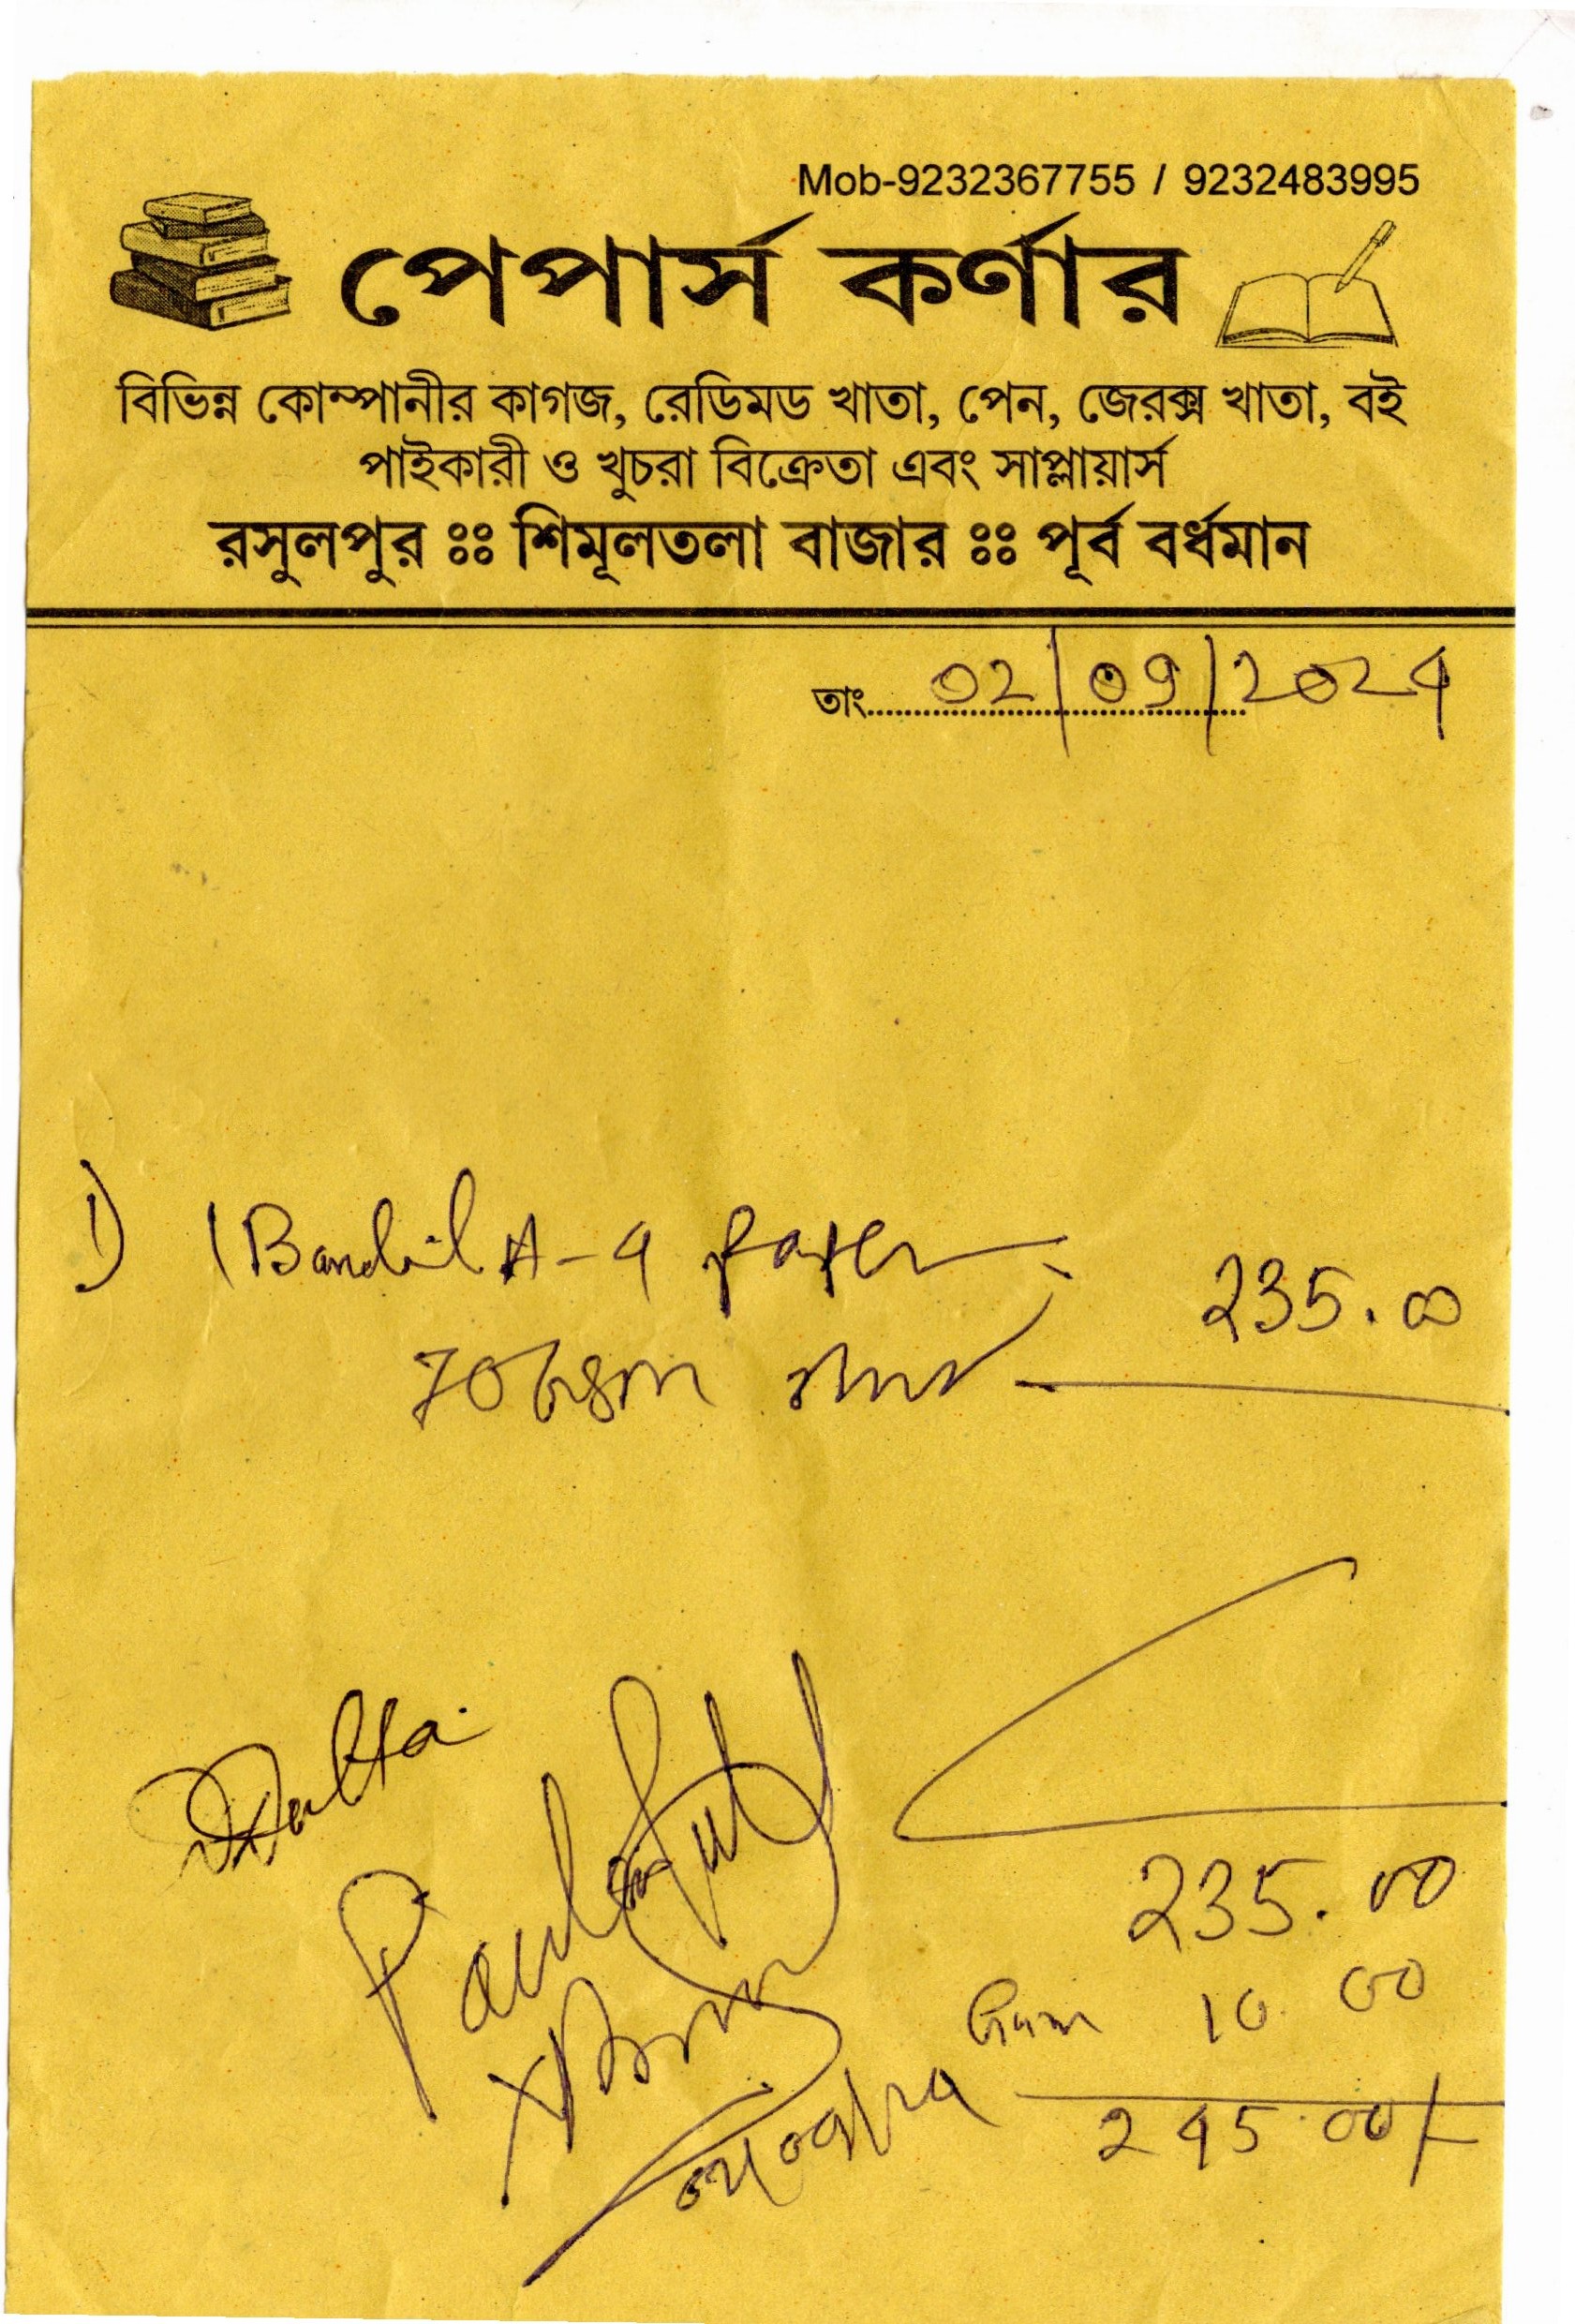 Mob-9232367755 / 9232483995
পেপার্স কর্ণার
বিভিন্ন কোম্পানীর কাগজ, রেডিমড খাতা, পেন, জেরক্স খাতা, বই
পাইকারী ও খুচরা বিক্রেতা এবং সাপ্লায়ার্স
রসুলপুর ঃঃ শিমূলতলা বাজার ঃঃ পূর্ব বর্ধমান
তাং 02/09/2024
1) 1 Bandil A-4 Paper 235.00
70 Gsm
Dutta
235.00
10 00
245.00/-